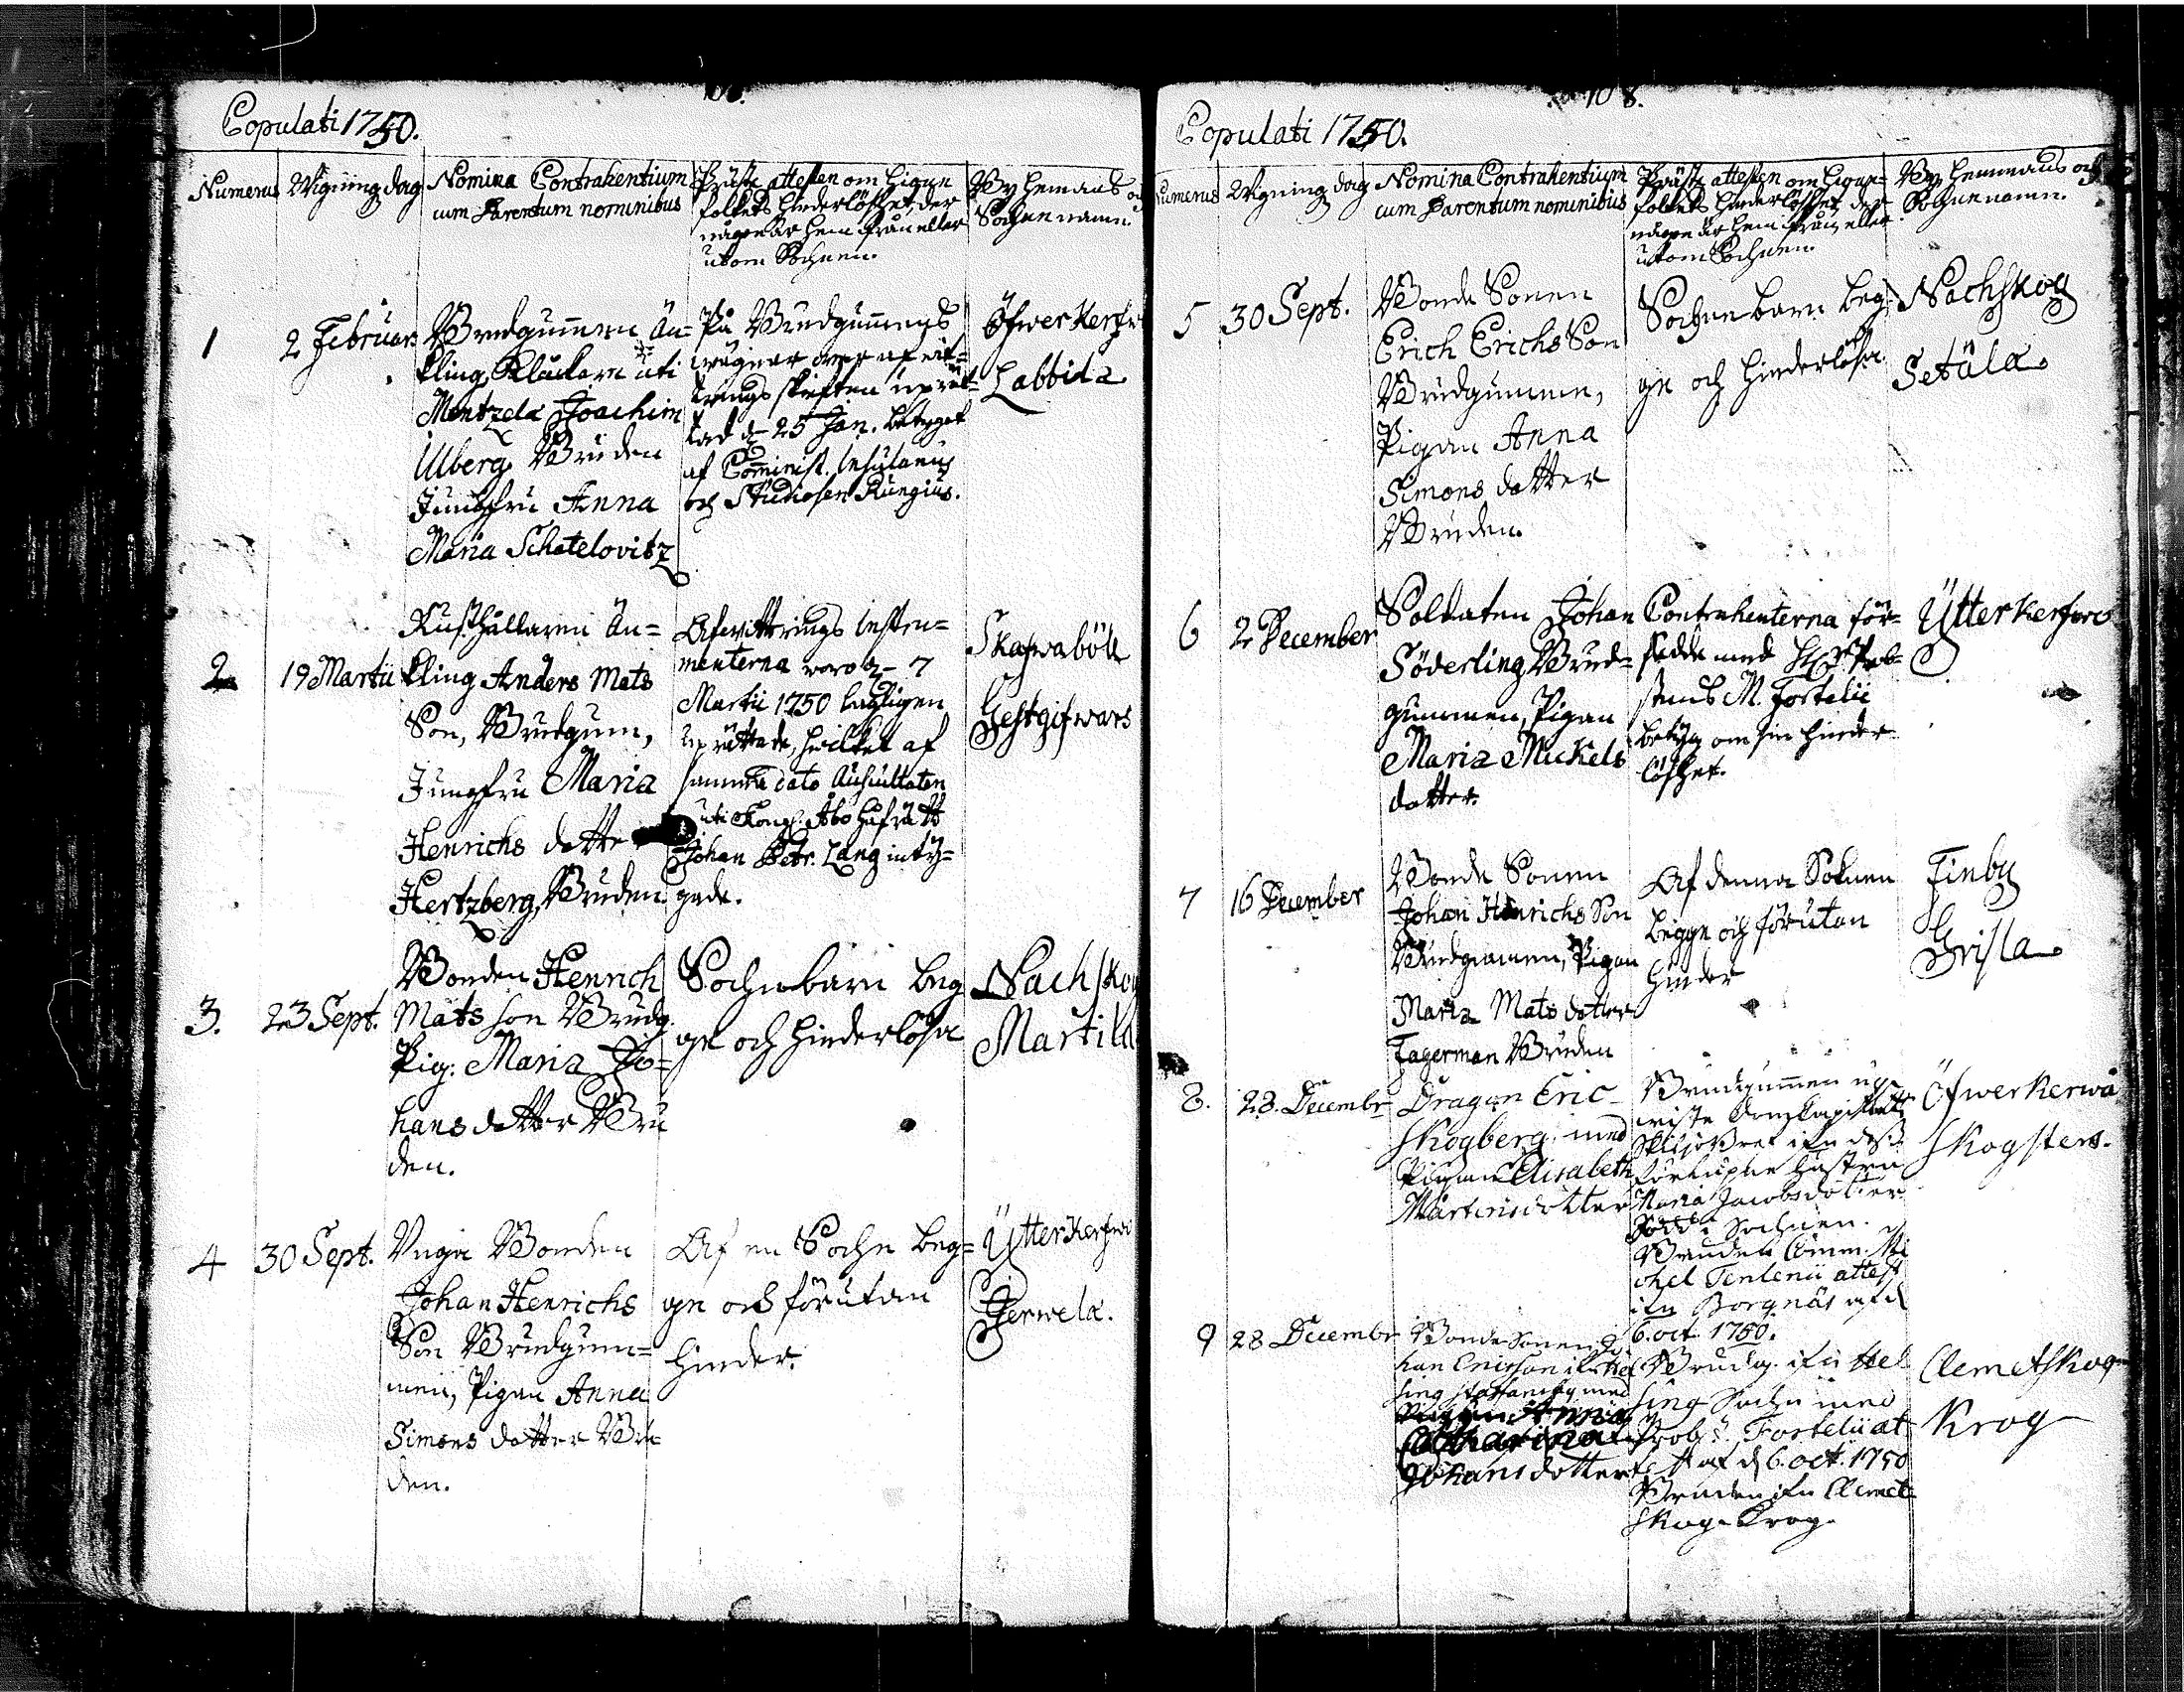 Copulati 1750.
Numerus
Wigning dag
Nomina Contrahentium
cum Parentum nominibus
Präste attesten om Ligne
folkets hinderlöshet, der
någre är hem ifrån eller
utom Sochnen.
By hemans och
Sochne namn.
1
2 Februar.
Brudgummen Än-
kling, Kluckarn uti
Mentzela Joachim
Ulberg, Bruden
Jungfru Anna
Maria Schatelovitz
På Brudgummens
wägnar war afwit-
trings skriften uprät-
tad d 25 Jan. betygat
af Comminist. Insulanus
och Studiosen Rungius.
Öfwer Kerfw
Labbila
2
19 Martii
Rusthållaren Än-
kling Anders Mats
Son, Brudgum,
Jungfru Maria
Henrichs datter
Hertzberg, Bruden.
Afwittrings Instru-
menterna woro d 7
Martii 1750 lagligen
uprättade, hwilket af
samma dato Auscultaten
uti Kongl. Åbo Hofrätt
Johan Petr. Lang inty-
gade.
Skafwaböle
Gestgifwars
3.
23 Sept.
Bonden Henrich
Mats son Brudg.
Pig. Maria Jo-
hans datter Bru
den.
Sochnebarn beg
ge och hinderlösa
Nachskog
Martila
4
30 Sept.
Unga Bonden
Johan Henrichs
Son Brudgum-
men, Pigan Anna
Simons datter Bru-
den.
Af en Sochn beg-
ge och förutan
hinder.
Ytter Kerfwo
Jerwela.
108.
Copulati 1750.
Numerus
Wigning dag
Nomina Contrahentium
cum Parentum nominibus
Präste attesten om Ligne-
folkets hinderlöshet, der
någre är hem ifrån, eller
utom Sochnen.
By, hemmans och
Sochne namn.
5
30 Sept.
Bonde Sonen
Erich Erichs Son
Brudgummen,
Pigan Anna
Simons datter
Bruden.
Sochne barn beg-
ge och hinderlösa.
Nachskog
Setula
6
2 December
Soldaten Johan
Söderling Brud-
gummen, Pigan
Maria Mickels
datter.
Contrahenterna för-
sedde med H Prob-
stens M. Fortelii
betyg om sin hinder
löshet.
Ytterkerfwo
7
16 December
Bonde Sonen
Johan Henrichs Son
Brudgummen, Pigan
Maria Mats datter
Fagerman Bruden
Af denna Soknen
begge och förutan
hinder
Finby
Grisla
8.
28. Decembr
Dragon Eric
Skogberg med
Pigan Elisabeth
Mårtensdotter
Brudgummen up
wiste Domkapitlets
Skiljobref ifrån dess
förlupne hustru
Maria Jacobsdotter
född i Sochnen.
Bruden Comm. Mi
chel Tenlenii attest
ifrån Borgnäs af d
6. oct. 1750.
Öfwerkerwå
Skogsters.
9
28 Decembr
Bonde Sonen Jo-
han Ericsson ifrån Hel
sing Staffansby med
Pigan Anna
Catharina
Johansdotter
Brudg. ifrån Hel
sing Sochn med
Prob. Fortelii at-
test af d 6. oct. 1750
Bruden ifrån Clemet
skog. Krog.
Clemetskog
Krog